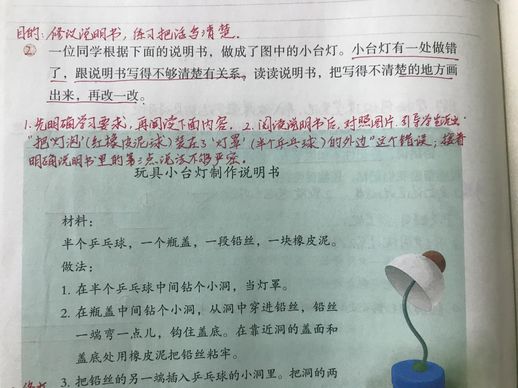 目的:修改说明书,练习把话写清楚.
② 一位同学根据下面的说明书,做成了图中的小台灯。小台灯有一处做错
了,跟说明书写得不够清楚有关系。读读说明书,把写得不清楚的地方画
出来,再改一改。
1.先明确学习要求,再阅读下面内容. 2.阅读说明书后,对照图片,引导学生找出
"把'灯泡'(红橡皮泥球)装在了'灯罩'(半个乒乓球)的外边"这个错误,接着
明确说明书里的第3点说法不够严密.
玩具小台灯制作说明书
材料:
半个乒乓球,一个瓶盖,一段铅丝,一块橡皮泥。
做法:
1. 在半个乒乓球中间钻个小洞,当灯罩。
2. 在瓶盖中间钻个小洞,从洞中穿进铅丝,铅丝
一端弯一点儿,钩住盖底。在靠近洞的盖面和
盖底处用橡皮泥把铅丝粘牢。
3. 把铅丝的另一端插入乒乓球的小洞里。把洞的两